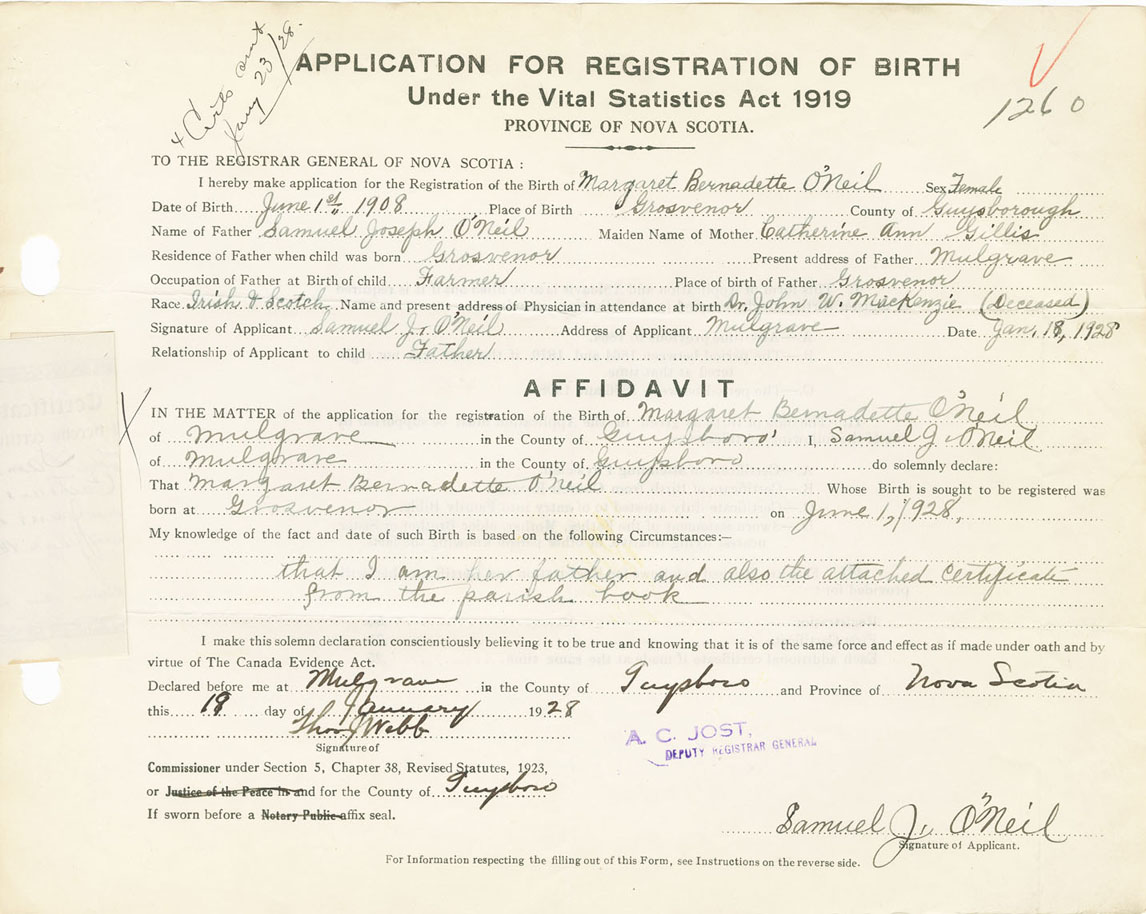 4 Certs sent
Jany 23/28.
1260
APPLICATION FOR REGISTRATION OF BIRTH
Under the Vital Statistics Act 1919
PROVINCE OF NOVA SCOTIA.
TO THE REGISTRAR GENERAL OF NOVA SCOTIA :
I hereby make application for the Registration of the Birth of Margaret Bernadette O'Neil Sex Female
Date of Birth June 1st, 1908 Place of Birth Grosvenor County of Guysborough
Name of Father Samuel Joseph O'Neil Maiden Name of Mother Catherine Ann Gillis
Residence of Father when child was born Grosvenor Present address of Father Mulgrave
Occupation of Father at Birth of child Farmer Place of birth of Father Grosvenor
Race Irish & Scotch Name and present address of Physician in attendance at birth Dr. John W. MacKenzie (Deceased)
Signature of Applicant Samuel J. O'Neil Address of Applicant Mulgrave Date Jan. 18, 1928
Relationship of Applicant to child Father
AFFIDAVIT
IN THE MATTER of the application for the registration of the Birth of Margaret Bernadette O'Neil
of Mulgrave in the County of Guysboro' I, Samuel J. O'Neil
of Mulgrave in the County of Guysboro do solemnly declare:
That Margaret Bernadette O'Neil Whose Birth is sought to be registered was
born at Grosvenor on June 1, 1928,
My knowledge of the fact and date of such Birth is based on the following Circumstances:—
that I am her father and also the attached certificate
from the parish book
I make this solemn declaration conscientiously believing it to be true and knowing that it is of the same force and effect as if made under oath and by
virtue of The Canada Evidence Act.
Declared before me at Mulgrave in the County of Guysboro and Province of Nova Scotia
this 18 day of January 1928
Thos J Webb
Signature of
A. C. JOST,
DEPUTY REGISTRAR GENERAL
Commissioner under Section 5, Chapter 38, Revised Statutes, 1923,
or Justice of the Peace in and for the County of Guysboro
If sworn before a Notary Public affix seal.
Samuel J. O'Neil
Signature of Applicant.
For Information respecting the filling out of this Form, see Instructions on the reverse side.